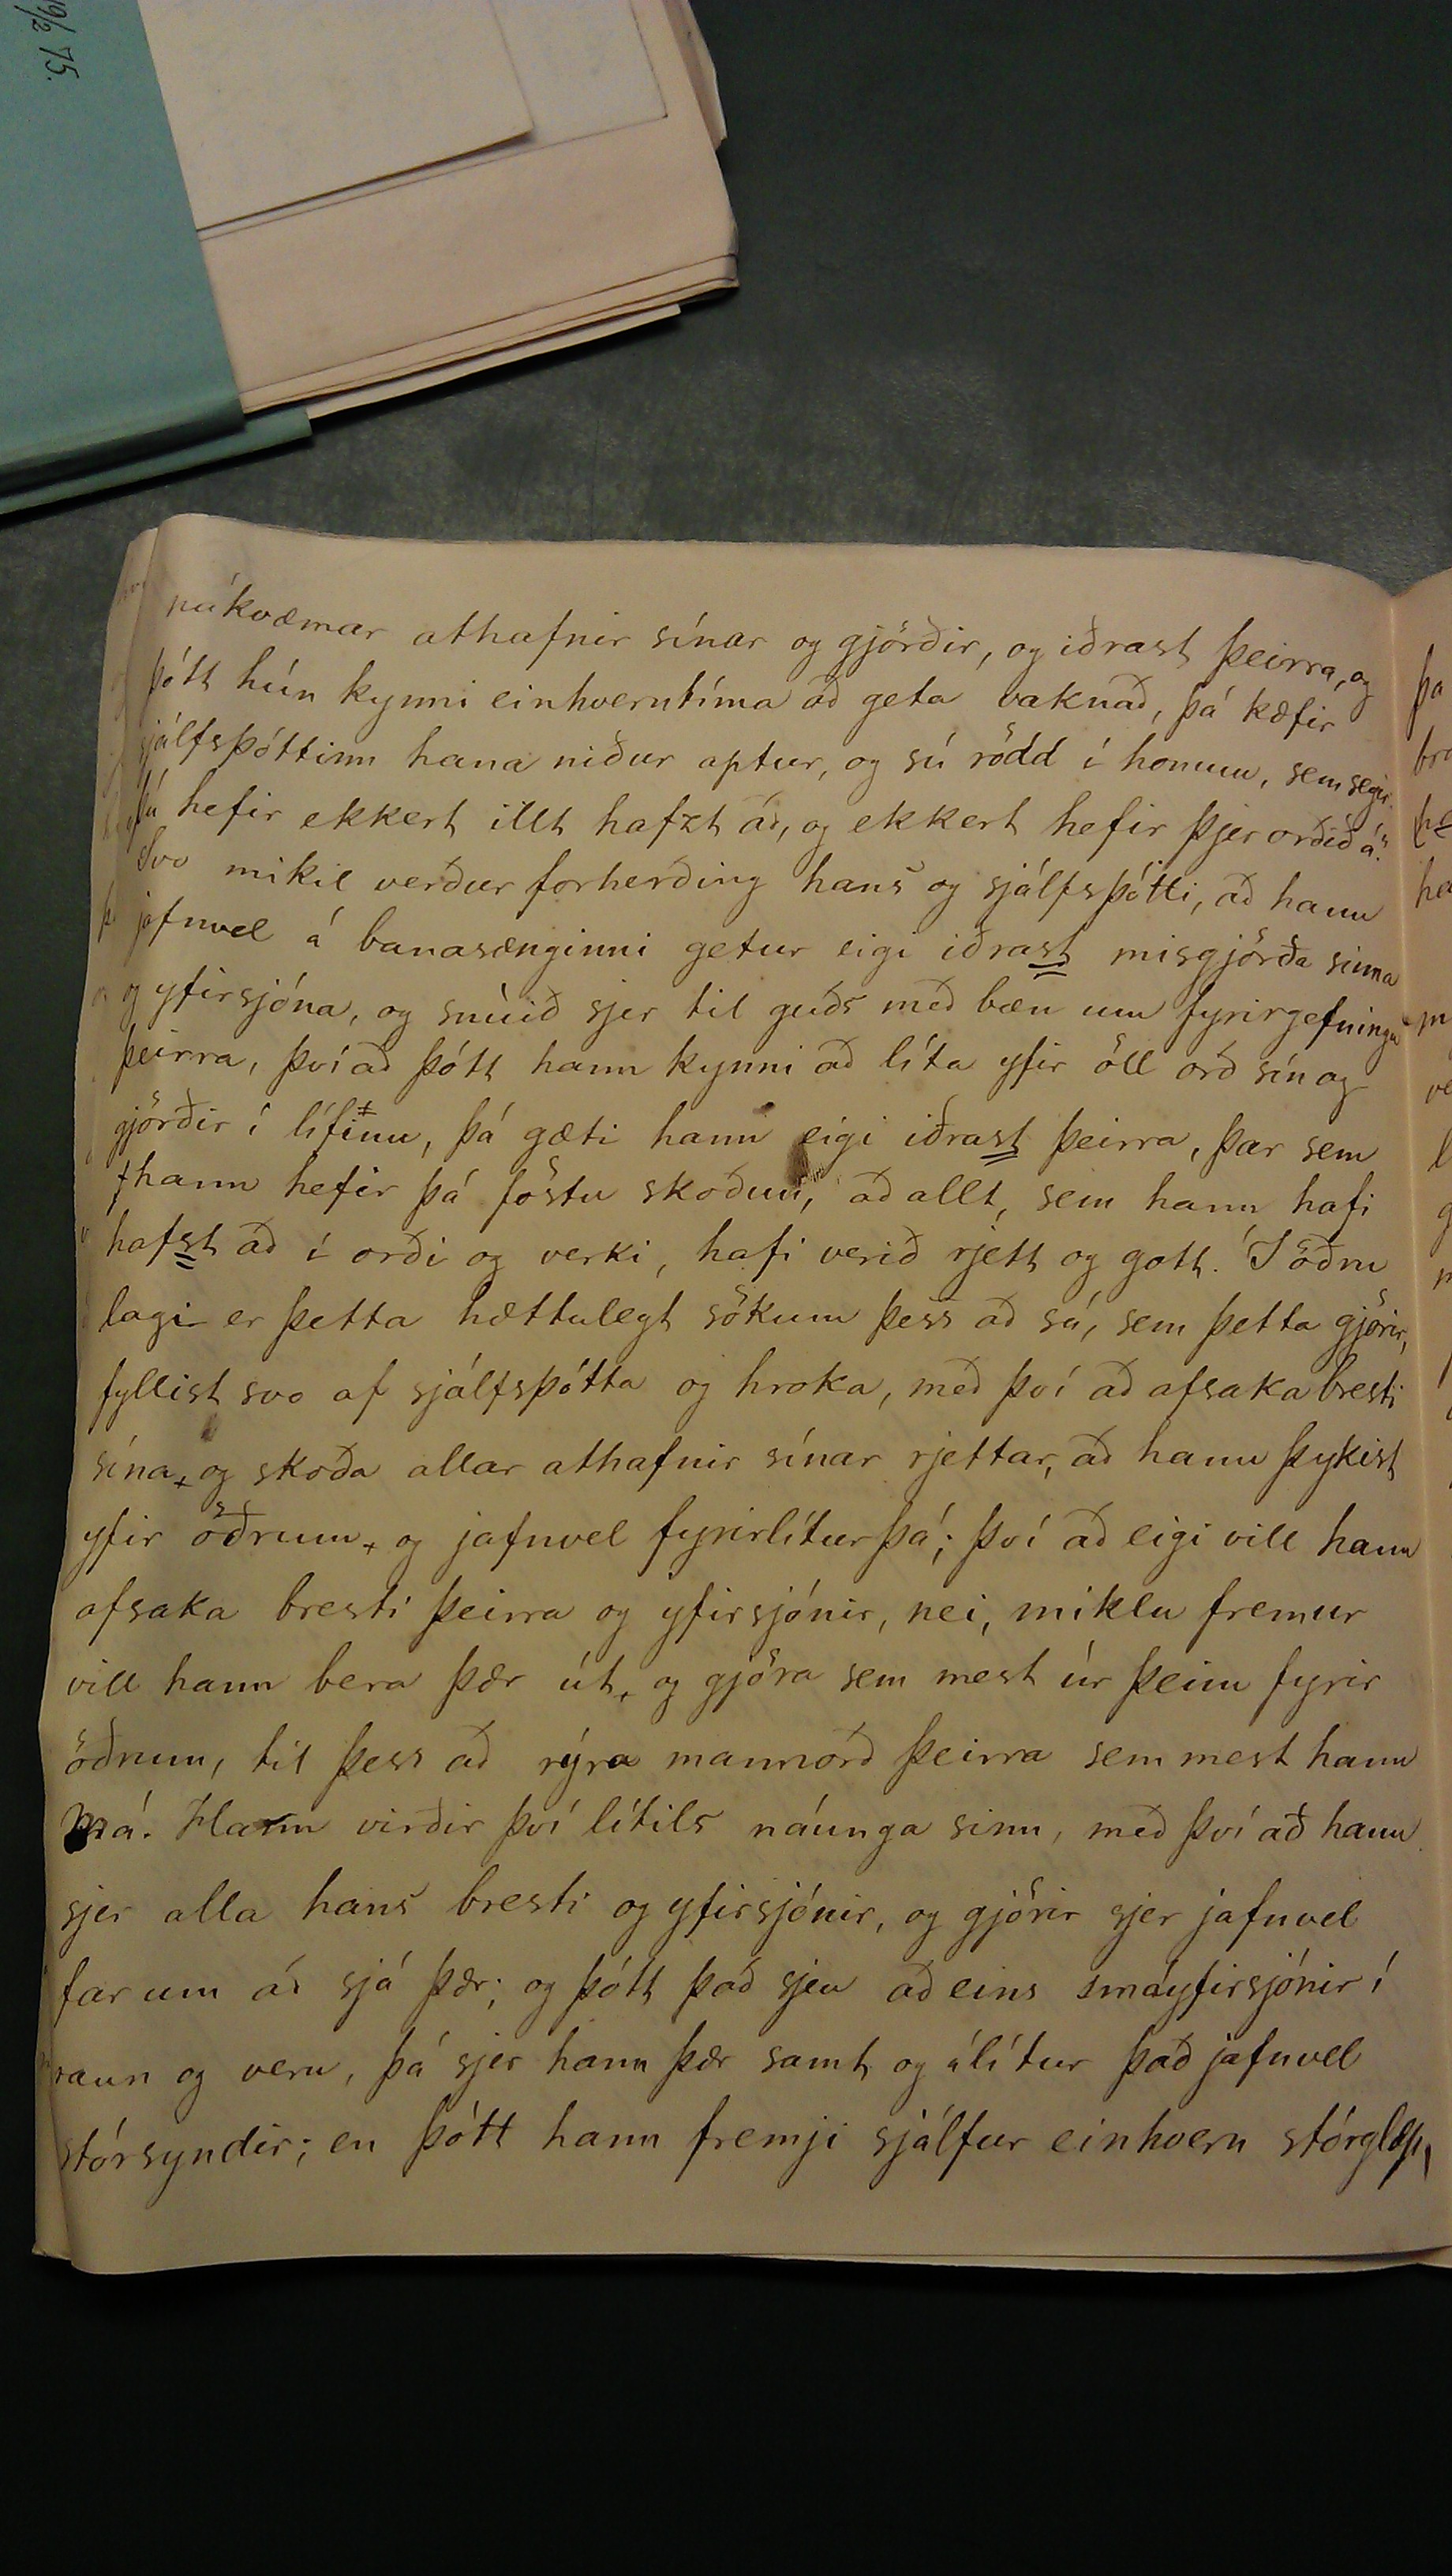 19/2 75.
núkvæmar athafnir sínar og gjörðir, og iðrast þeirra, og
þótt hún kynni einhverntíma að geta vaknað, þá kæfir
sjálfsþóttinn hana niður aptur, og sú rödd í honum, sem segir:
þú hefir ekkert illt hafzt að, og ekkert hefir þjer orðið á."
Svo mikil verður forherðing hans og sjálfsþótti, að hann
jafnvel á banasænginni getur eigi iðrast misgjörða sinna
og yfirsjóna, og snúið sjer til guðs með bæn um fyrirgefningu
þeirra, því að þótt hann kynni að líta yfir öll orð sín og
gjörðir í lífinu, þá gæti hann eigi iðrast þeirra, þar sem
hann hefir þá föstu skoðun, að allt, sem hann hafi
hafst að í orði og verki, hafi verið rjett og gott. Í öðru
lagi er þetta hættulegt sökum þess að sá, sem þetta gjörir,
fyllist svo af sjálfsþótta og hroka, með því að afsaka bresti
sína, og skoða allar athafnir sínar rjettar, að hann þykist
yfir öðrum, og jafnvel fyrirlítur þá; því að eigi vill hann
afsaka bresti þeirra og yfirsjónir, nei, miklu fremur
vill hann bera þær út, og gjöra sem mest úr þeim fyrir
öðrum, til þess að rýra mannorð þeirra sem mest hann
má. Hann virðir því lítils náunga sinn, með því að hann
sjer alla hans bresti og yfirsjónir, og gjörir sjer jafnvel
far um að sjá þær; og þótt það sjeu að eins smáyfirsjónir í
raun og veru, þá sjer hann þær samt, og álítur það jafnvel
stórsyndir; en þótt hann fremji sjálfur einhvern stórglæp,